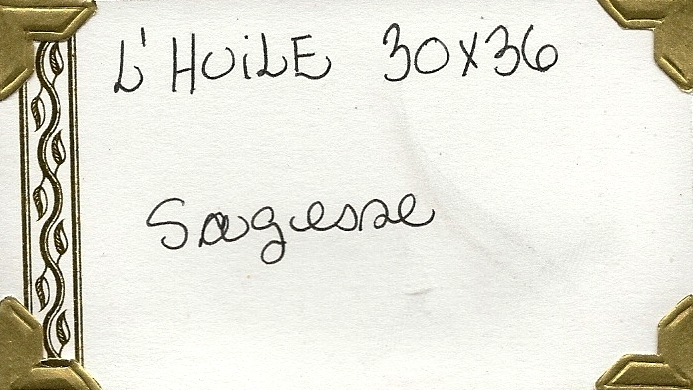 L'HUILE 30X36
Sagesse